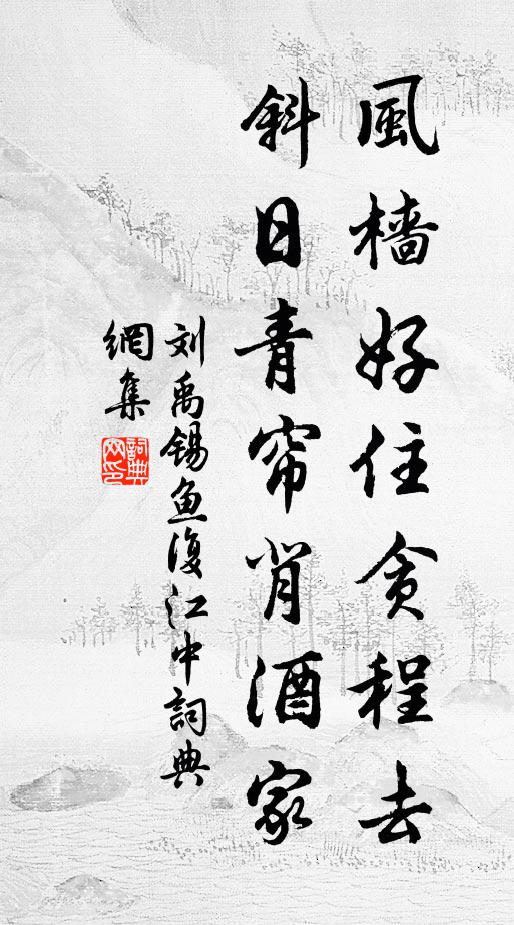 風檣好住貪程去
斜日青帘背酒家
刘禹锡鱼復江中詞典
網集
詞典
网印